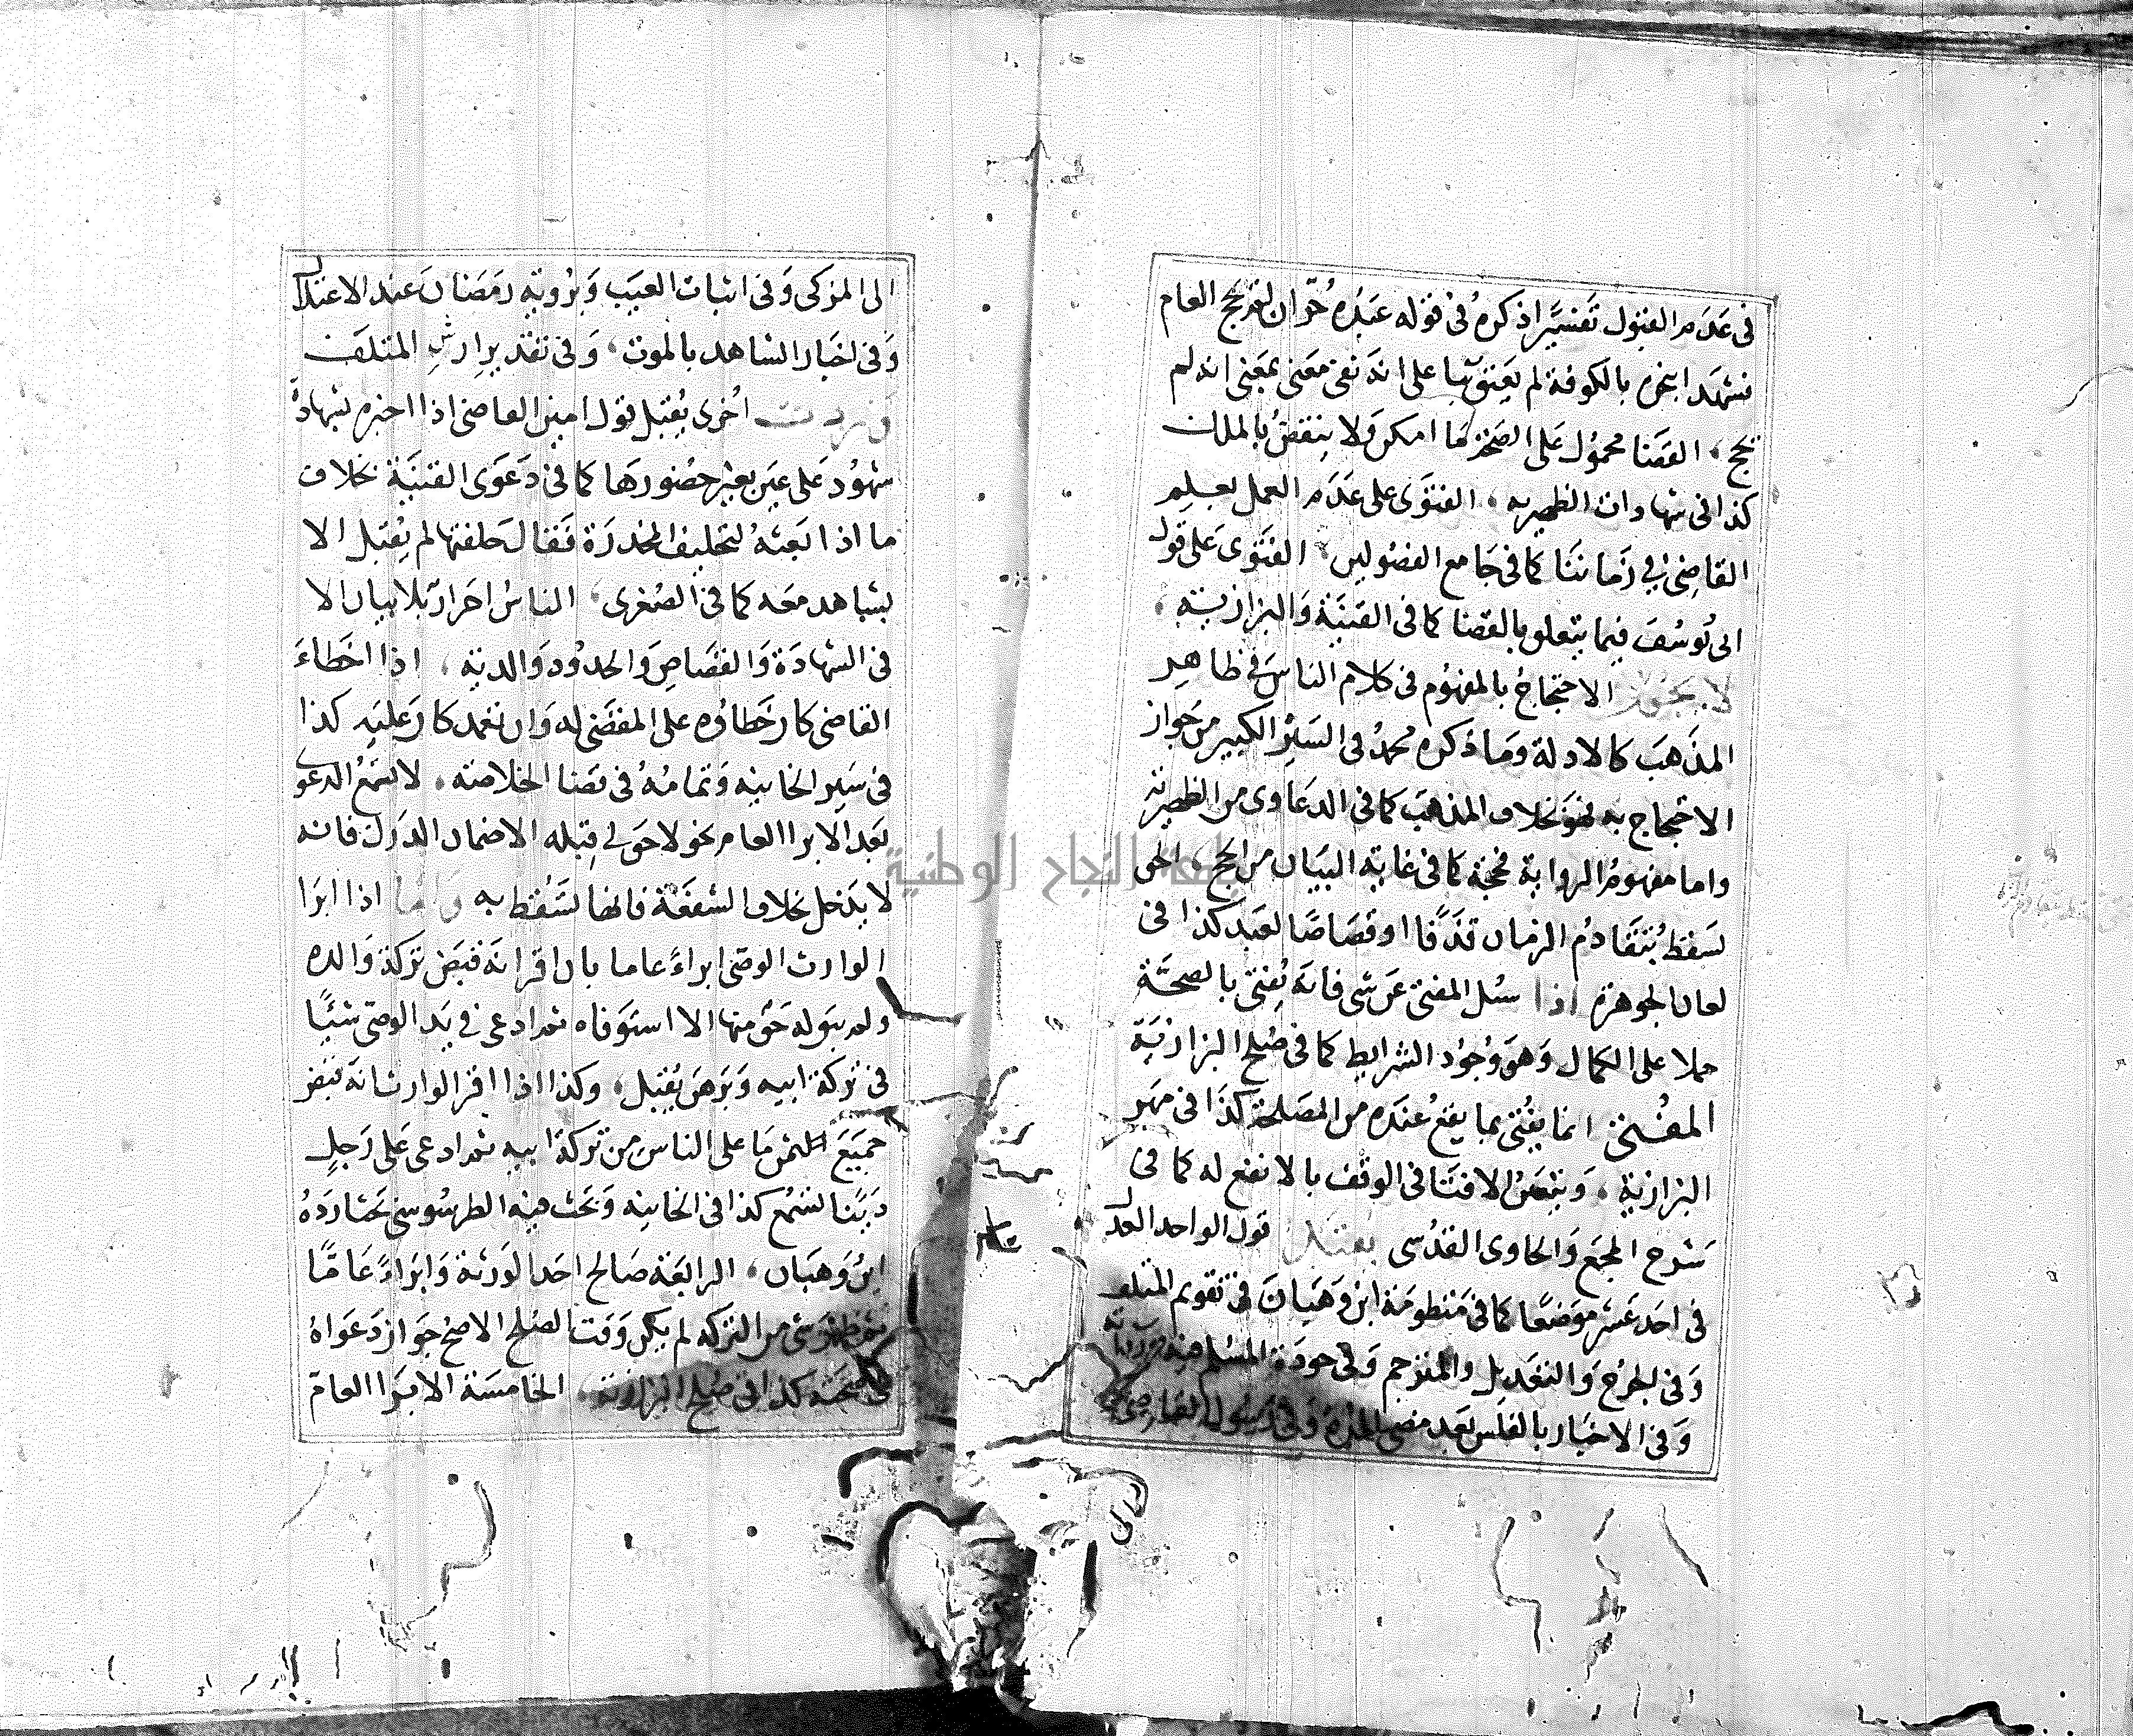 في عدم القبول تفسيرا ذكره في قوله عبده حر ان لم يحج العام
فشهد ابنحره بالكوفة لم يعتق بنا على انه نفى معنى بمعنى انه لم
يحج، القضا محمول على الصحة ما امكن ولا ينقض بالملك
كذا في شهادات الظهيريه، الفتوى على عدم العمل بعلم
القاضي في زماننا كما في جامع الفصولين، الفتوى على قول
ابي يوسف فيما يتعلق بالقضا كما في القنية والبزازية،
لا يجوز الاحتجاج بالمفهوم في كلام الناس في ظاهر
المذهب كالادلة وما ذكره محمد في السير الكبير من جواز
الاحتجاج به فهو خلاف المذهب كما في الدعاوى من الظهيرية
واما مفهوم الرواية فحجة كما في غاية البيان من الحج، الحق
لا يسقط بتقادم الزمان قذفا او قصاصا لعبد كذا في
لعان الجوهرة اذا سئل المفتي عن شي فانه يفتي بالصحة
حملا على الكمال وهو وجود الشرايط كما في صلح البزازية
المفتي انما يفتي بما يقع عنده من المصلحة كذا في مهر
البزازية، ويتعين الافتا في الوقف بالانفع له كما في
شرح المجمع والحاوى القدسي يقبل قول الواحد العدل
في احد عشر موضعا كما في منظومة ابن وهبان في تقويم المتلف
وفي الجرح والتعديل والمترجم وفي جودة المسلم فيه ورداته
وفي الاخبار بالفلس بعد مضي المدة وفي رسول القاضي
الى
الى المزكى وفي اثبات العيب وبرؤية رمضان عند الاعتلال
وفي اخبار الشاهد بالموت، وفي تقدير ارش المتلف
اخرى يقبل قول امين القاضي اذا اخبره بشهادة
شهود على عين بغير حضورها كما في دعوى القنية بخلاف
ما اذا بعثه لتحليف المخدرة فقال حلفتها لم يقبل الا
بشاهد معه كما في الصغرى، الناس احرار بلا بيان الا
في الشهادة والقصاص والحدود والدية، اذا اخطاء
القاضي كان خطاؤه على المقضي له وان تعمد كان عليه كذا
في سير الخانيه وتمامه في قضا الخلاصة، لا تسمع الدعوى
بعد الابرا العام نحو لا حق لي قبله الا ضمان الدرك فانه
لا يدخل بخلاف الشفعة فانها تسقط به واما اذا ابرا
الوارث الوصي ابراء عاما بان اقر انه قبض تركة والده
ولم يبق له حق منها الا استوفاه ثم ادعى في يد الوصي شيئا
في تركة ابيه وبرهن يقبل، وكذا اذا اقر الوارث انه قبض
جميع ما على الناس من تركة ابيه ثم ادعى على رجل
دينا تسمع كذا في الخانيه وبحث فيه الطرسوسي بحثا رده
ابن وهبان، الرابعة صالح احد الورثة وابراء عاما
ثم ظهر شي من التركه لم يكن وقت الصلح الاصح جواز دعواه
في حصته كذا في صلح البزازيه، الخامسة الابرا العام
جامعة النجاح الوطنية